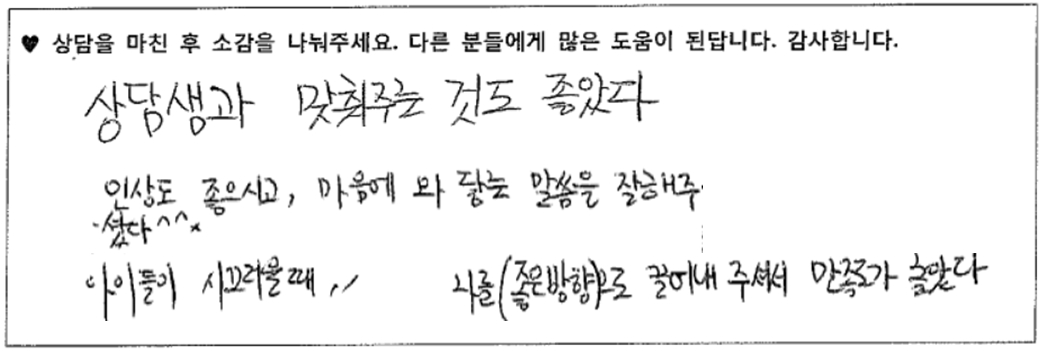 ♥ 상담을 마친 후 소감을 나눠주세요. 다른 분들에게 많은 도움이 된답니다. 감사합니다.
상담생과 맞춰주는 것도 좋았다
인상도 좋으시고, 마음에 와 닿는 말씀을 잘해주
셨다^^
아이들이 시끄러울때,,
나를(좋은방향)으로 끌어내 주셔서 만족도가 높았다